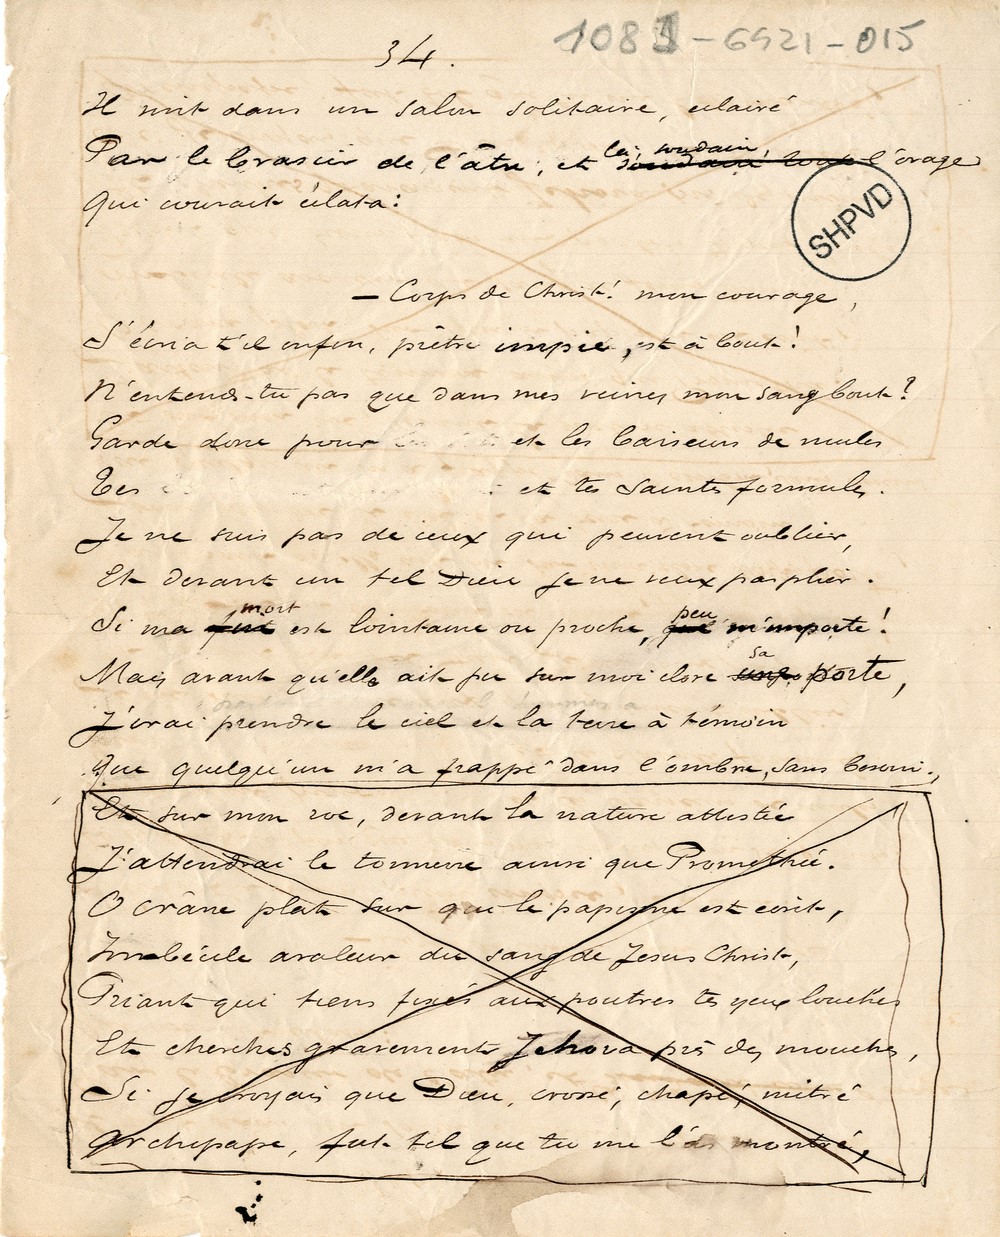 1081-6921-015
34.
Il vint dans un salon solitaire, éclairé
Par le brasier de l'âtre ; et là, soudain, soudain tout l'orage
Qui couvait éclata :
SHPVD
— Corps de Christ ! mon courage,
S'écria t'il enfin, prêtre impie, est à bout !
N'entends-tu pas que dans mes veines mon sang bout ?
Garde donc pour et les baiseurs de mules
Tes et tes saintes formules.
Je ne suis pas de ceux qui peuvent oublier,
Et devant un tel Dieu je ne veux pas plier.
Si ma mort est lointaine ou proche, peu m'importe !
Mais avant qu'elle ait pu sur moi clore sa porte,
J'irai prendre le ciel et la terre à témoin
Que quelqu'un m'a frappé dans l'ombre, sans besoin,
Et sur mon roc, devant la nature attestée
J'attendrai le tonnerre ainsi que Promethée.
O crâne plat sur qui le papisme est écrit,
Imbécile avaleur du sang de Jesus Christ,
Priant qui tiens fixés aux poutres tes yeux louches
Et cherches gravement Jehova près des mouches,
Si je croyais que Dieu, crossé, chapé, mitré
Archipape, fut tel que tu me l'as montré,